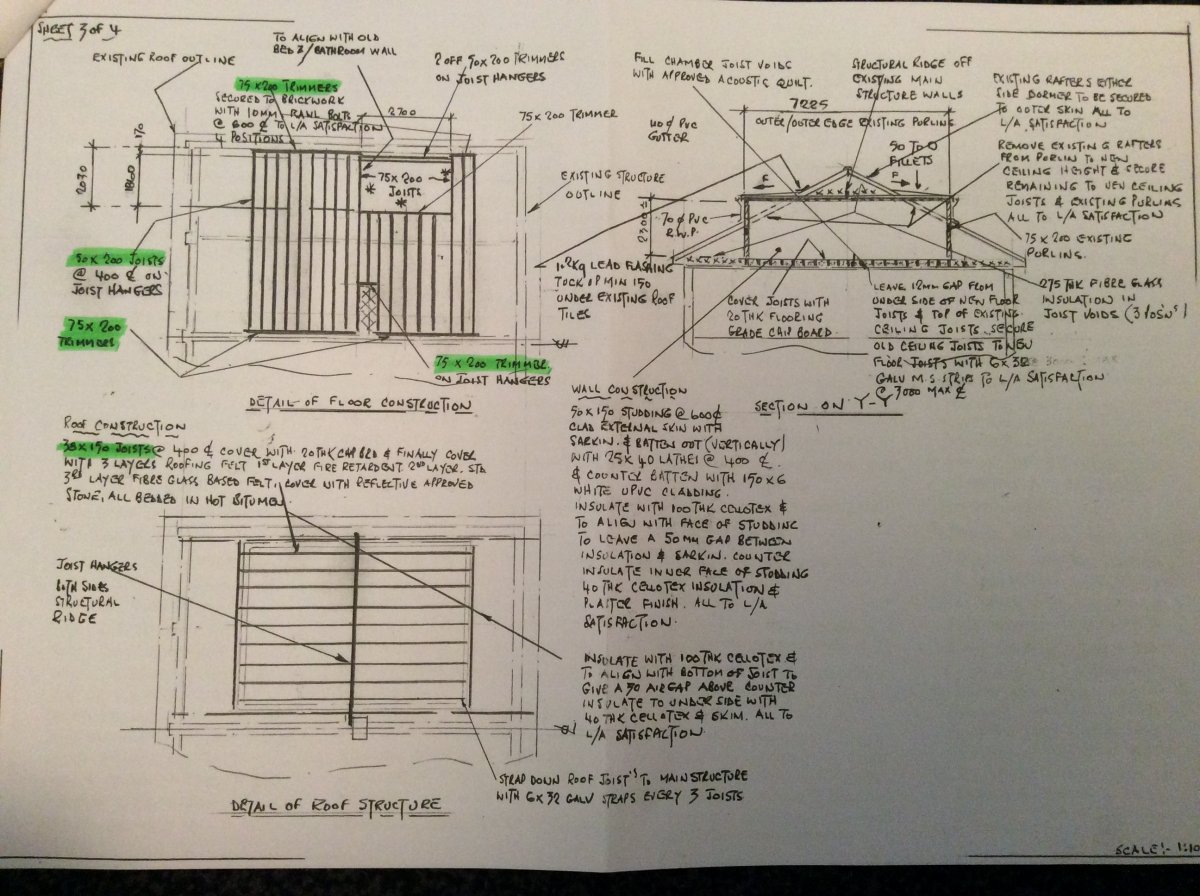 SHEET 3 of 4
EXISTING ROOF OUTLINE
TO ALIGN WITH OLD
BED 3/BATHROOM WALL
2 OFF 50x200 TRIMMERS
ON JOIST HANGERS
75x200 TRIMMERS
SECURED TO BRICKWORK
WITH 10MM RAWL BOLTS
@ 600 ¢ TO L/A SATISFACTION
4 POSITIONS
2700
75x200 TRIMMER
170
1860
2030
75x200
JOISTS
EXISTING STRUCTURE
OUTLINE
50x200 JOISTS
@ 400 ¢ ON
JOIST HANGERS
75x200
TRIMMERS
75x200 TRIMMER
ON JOIST HANGERS
DETAIL OF FLOOR CONSTRUCTION
FILL CHAMBER JOIST VOIDS
WITH APPROVED ACOUSTIC QUILT.
STRUCTURAL RIDGE OFF
EXISTING MAIN
STRUCTURE WALLS
EXISTING RAFTERS EITHER
SIDE DORMER TO BE SECURED
TO OUTER SKIN ALL TO
L/A SATISFACTION
7225
OUTER/OUTER EDGE EXISTING PURLING
110 ø PVC
GUTTER
50 TO 0
FILLETS
F
F
REMOVE EXISTING RAFTERS
FROM PURLIN TO NEW
CEILING HEIGHT & SECURE
REMAINING TO NEW CEILING
JOISTS & EXISTING PURLING
ALL TO L/A SATISFACTION
2300
70 ø PVC
R.W.P.
75x200 EXISTING
PURLING.
1.2Kg LEAD FLASHING
TUCK UP MIN 150
UNDER EXISTING ROOF
TILES
COVER JOISTS WITH
20THK FLOORING
GRADE CHIP BOARD.
LEAVE 12mm GAP FROM
UNDER SIDE OF NEW FLOOR
JOISTS & TOP OF EXISTING
CEILING JOISTS. SECURE
OLD CEILING JOISTS TO NEW
FLOOR JOISTS WITH 6x32
GALV M.S STRIPS TO L/A SATISFACTION
@ 3000 MAX ¢
275THK FIBRE GLASS
INSULATION IN
JOIST VOIDS
SECTION ON Y-Y
WALL CONSTRUCTION
50x150 STUDDING @ 600¢
CLAD EXTERNAL SKIN WITH
SARKIN. & BATTEN OUT (VERTICALLY)
WITH 25x40 LATHES @ 400 ¢.
& COUNTER BATTEN WITH 150x6
WHITE UPVC CLADDING.
INSULATE WITH 100THK CELLOTEX &
TO ALIGN WITH FACE OF STUDDING
TO LEAVE A 50MM GAP BETWEEN
INSULATION & SARKIN. COUNTER
INSULATE INNER FACE OF STUDDING
40THK CELLOTEX INSULATION &
PLASTER FINISH. ALL TO L/A
SATISFACTION.
ROOF CONSTRUCTION
38x150 JOISTS @ 400 ¢ COVER WITH 20THK CHP BRD & FINALLY COVER
WITH 3 LAYERS ROOFING FELT 1ST LAYER FIRE RETARDENT 2ND LAYER. STD
3RD LAYER FIBRE GLASS BASED FELT, COVER WITH REFLECTIVE APPROVED
STONE, ALL BEDDED IN HOT BITUMEN
JOIST HANGERS
BOTH SIDES
STRUCTURAL
RIDGE
INSULATE WITH 100THK CELLOTEX &
TO ALIGN WITH BOTTOM OF JOIST TO
GIVE A 50 AIRGAP ABOVE COUNTER
INSULATE TO UNDER SIDE WITH
40THK CELLOTEX & SKIM. ALL TO
L/A SATISFACTION.
STRAP DOWN ROOF JOIST'S TO MAIN STRUCTURE
WITH 6x32 GALV STRAPS EVERY 3 JOISTS
DETAIL OF ROOF STRUCTURE
SCALE:-